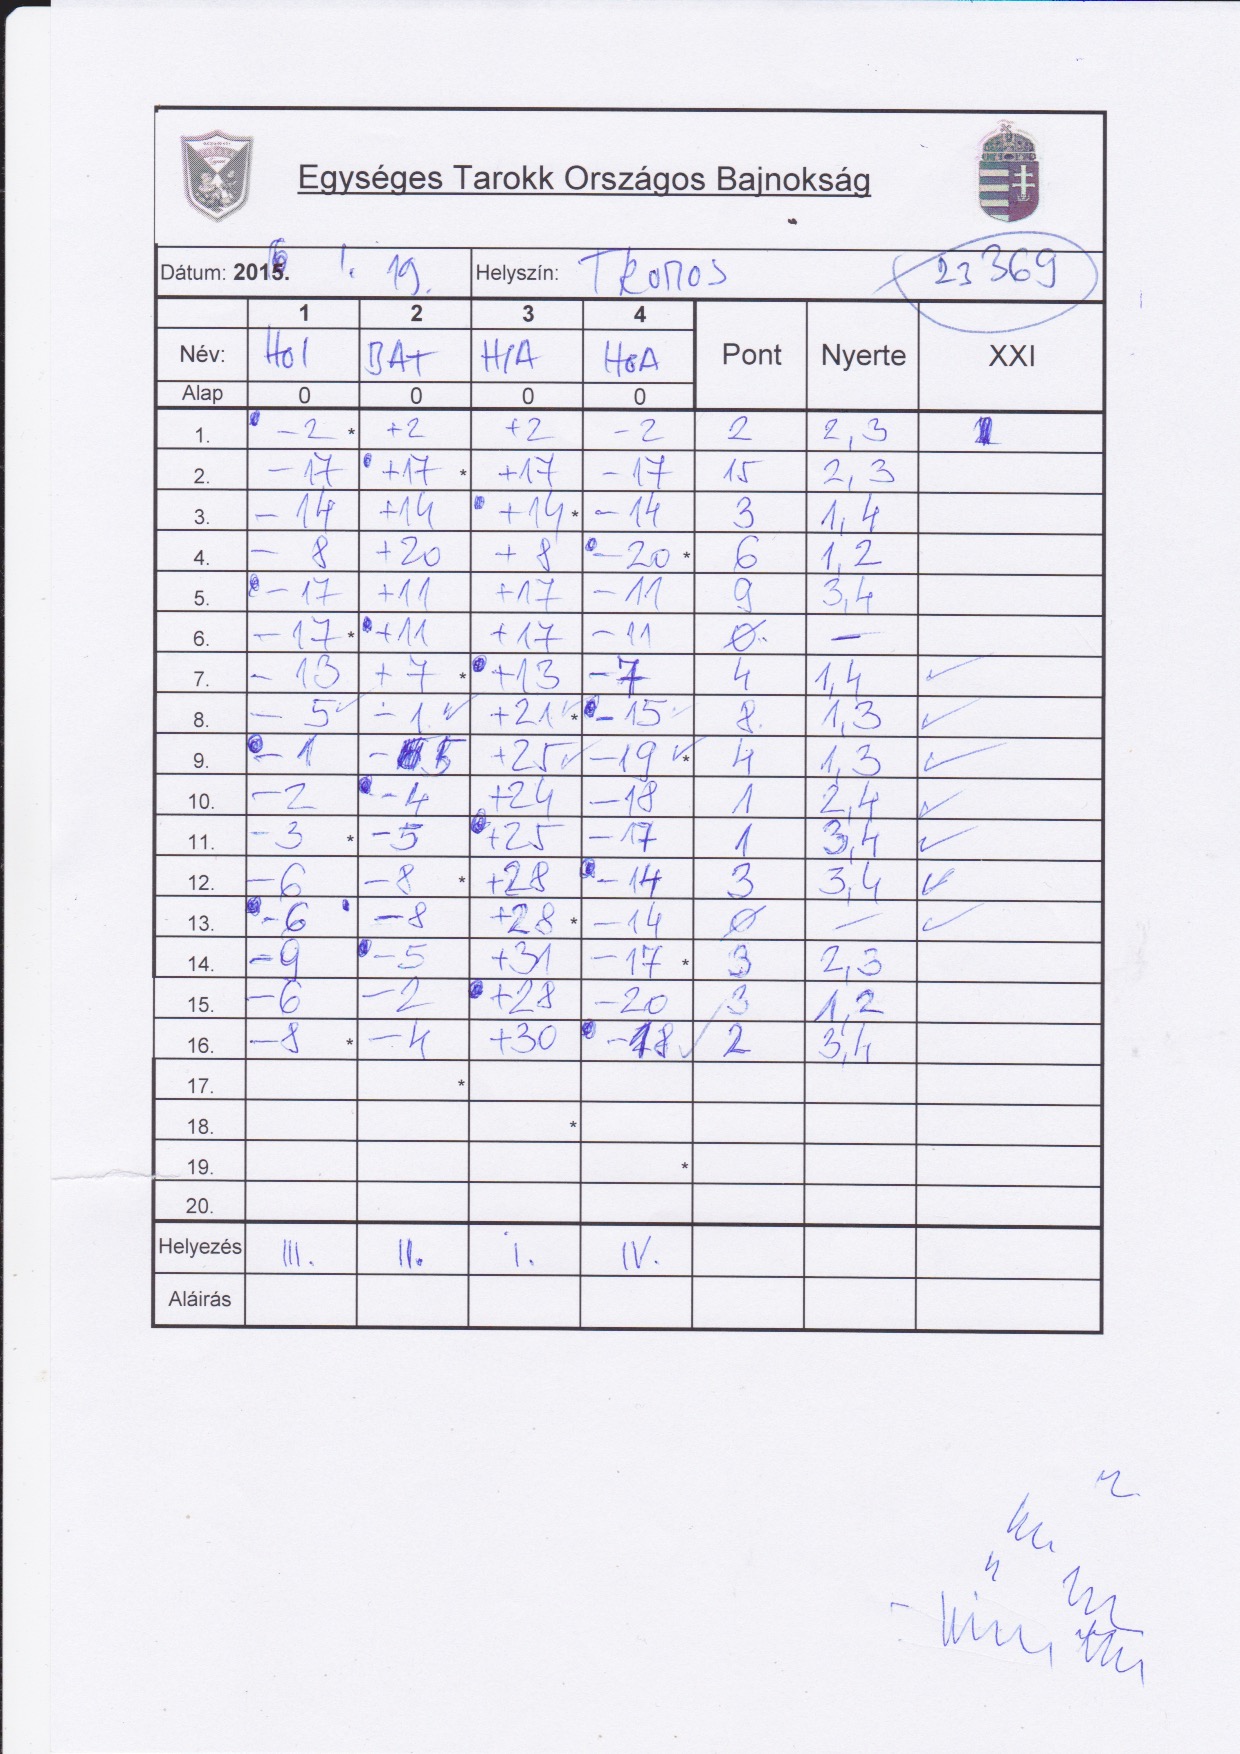 Egységes Tarokk Országos Bajnokság
Dátum: 2016. 1. 19. Helyszín: 23369
1 2 3 4
Név: HOI BAT HIA HOA Pont Nyerte XXI
Alap 0 0 0 0
1. -2 * +2 +2 -2 2 2,3 1
2. -17 +17 * +17 -17 15 2,3
3. -14 +14 +14 * -14 3 1,4
4. -8 +20 +8 -20 * 6 1,2
5. -17 +11 +17 -11 9 3,4
6. -17 * +11 +17 -11 0 —
7. -13 +7 * +13 -7 4 1,4 ✓
8. -5 ✓ -1 ✓ +21 ✓ * -15 ✓ 8. 1,3 ✓
9. -1 -5 +25 ✓ -19 ✓ * 4 1,3 ✓
10. -2 -4 +24 -18 1 2,4 ✓
11. -3 * -5 +25 -17 1 3,4 ✓
12. -6 -8 * +28 -14 3 3,4 ✓
13. -6 -8 +28 * -14 0 — ✓
14. -9 -5 +31 -17 * 3 2,3
15. -6 -2 +28 -20 3 1,2
16. -8 * -4 +30 -18 ✓ 2 3,4
17. *
18. *
19. *
20.
Helyezés III. II. I. IV.
Aláírás